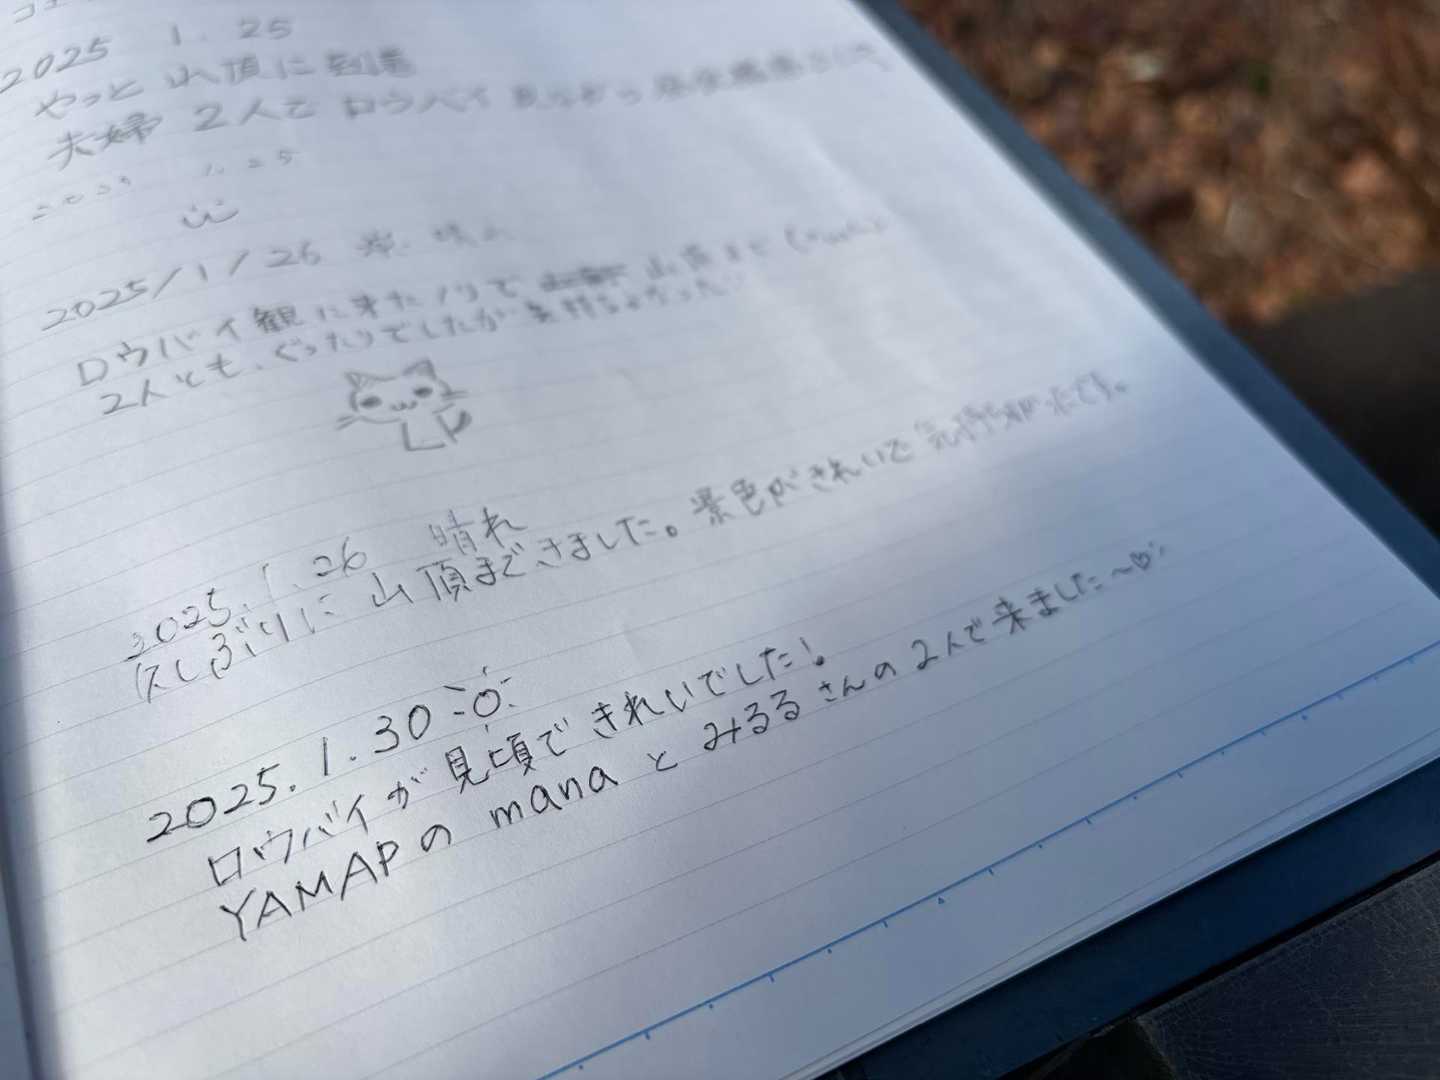 2025 1.25
やっと 山頂に到着
夫婦 2人で ロウバイ 見ながら
1.25
2025/1/26
ロウバイ観に来たノリで 山頂まで
2人とも、ぐったりでしたが気持ちよかった!
2025.1.26 晴れ
久しぶりに山頂まできました。景色がきれいで気持ちがよいです。
2025.1.30
ロウバイが見頃できれいでした!
YAMAPの mana と みるるさんの2人で来ました〜♡